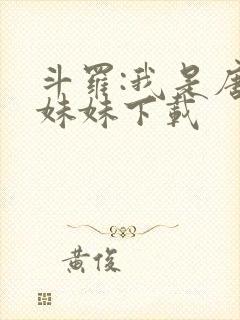 斗羅:我是唐
妹妹下載
黃俊